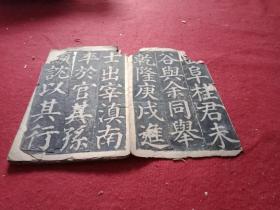 阜桂君未
谷與余同舉
乾隆庚戌進
士出宰滇南
卒於官其孫
以其行